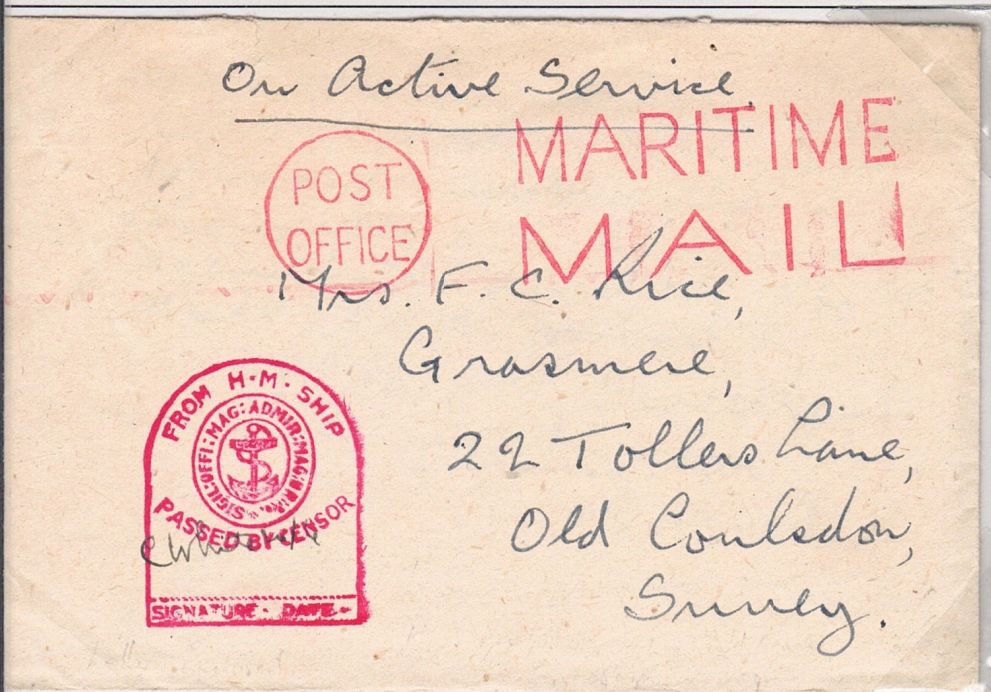 On Active Service
MARITIME
MAIL
POST
OFFICE
Mrs. F. C. Rice,
Grasmere,
22 Tollers Lane,
Old Coulsdon,
Surrey.
FROM H·M· SHIP
SIGIL: OFFI: MAG: ADMIR: MAG:
PASSED BY CENSOR
SIGNATURE - DATE -